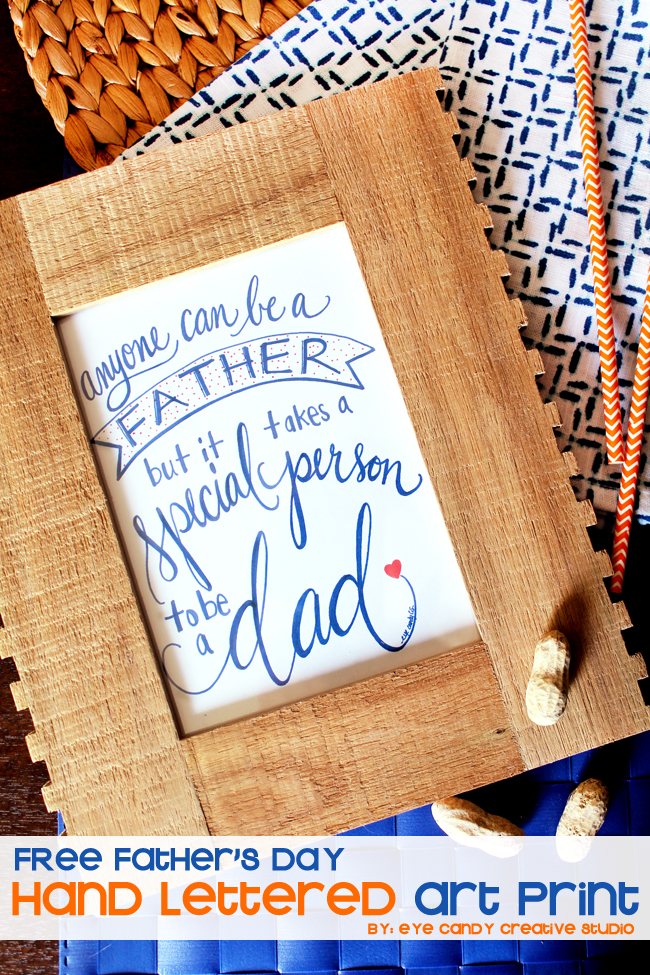 anyone can be a
FATHER
but it takes a
special person
to be
a dad
FREE FATHER'S DAY
HAND LETTERED ART PRINT
BY: EYE CANDY CREATIVE STUDIO